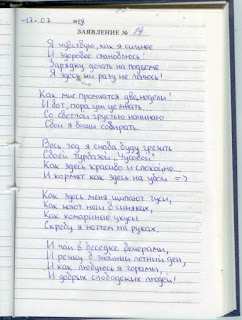 ЗАЯВЛЕНИЕ № 14
Я чувствую, как я сильнее
И здоровее становлюсь!
Зарядку делать на подъеме
Я здесь ни разу не ленюсь!
Как мне промчатся две недели!
И вот, пора уж уезжать...
Со светлой грустью начинаю
Свои я вещи собирать.
Весь год я снова буду грезить
Своей турбазой "Чусовой"
Как здесь красиво и спокойно...
И кормят как здесь на убой =)
Как здесь меня щипают гуси,
Как ноют ноги в синяках,
Как комариные укусы
Скребу я ногтем на руках,
И чай в беседке вечерами,
И речку в знойный летний день,
И как любуюсь я горами,
И добрых слободских людей!